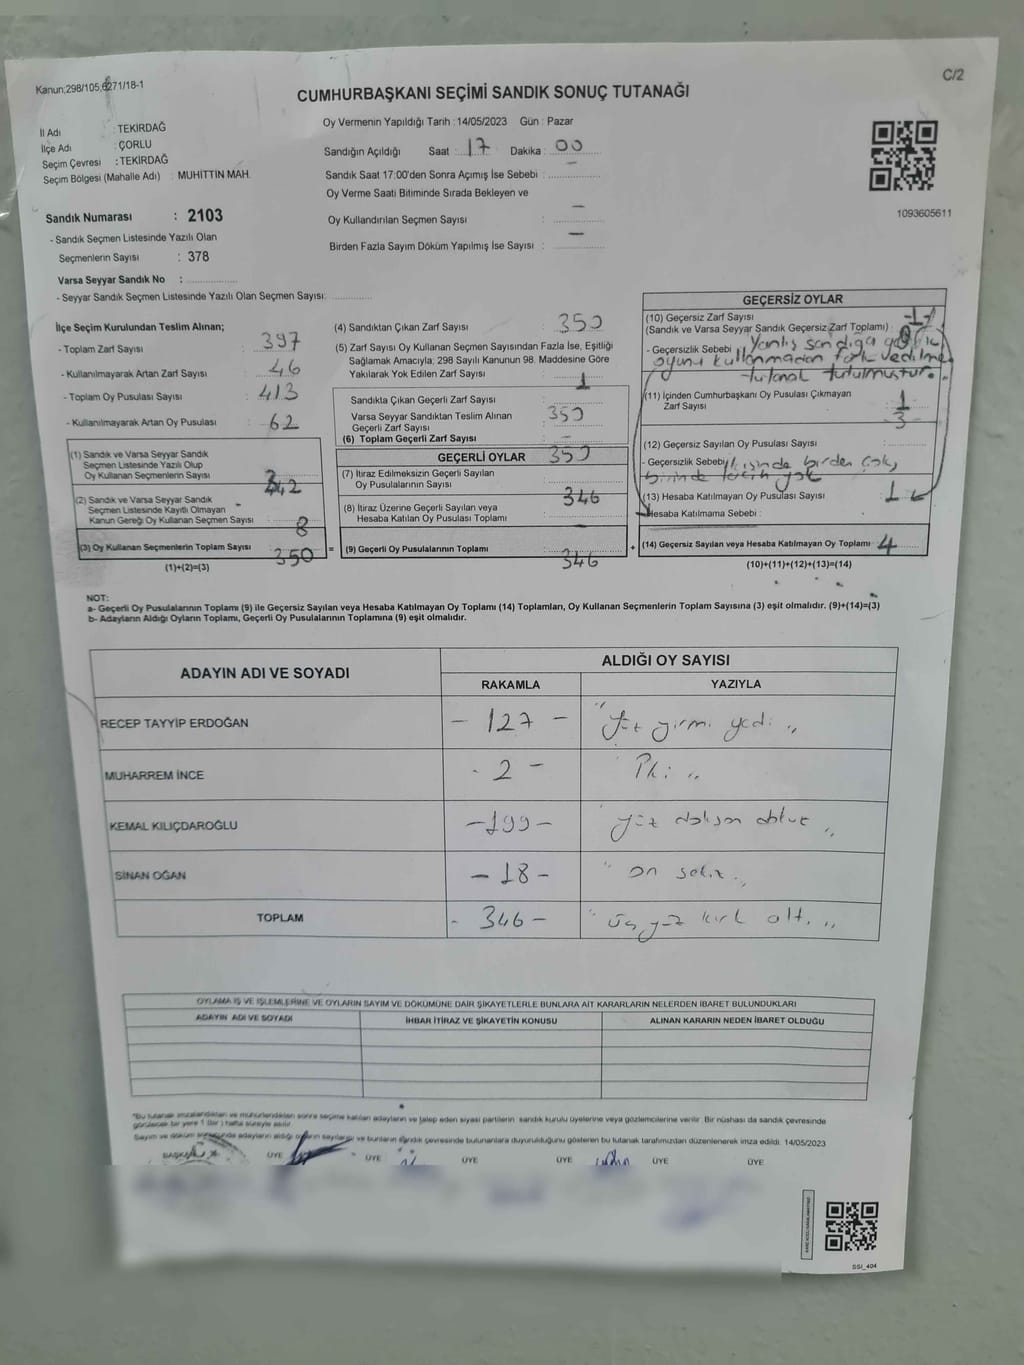 Kanun;298/105,6271/18-1
C/2
CUMHURBAŞKANI SEÇİMİ SANDIK SONUÇ TUTANAĞI
İl Adı : TEKİRDAĞ
İlçe Adı : ÇORLU
Seçim Çevresi : TEKİRDAĞ
Seçim Bölgesi (Mahalle Adı) : MUHİTTİN MAH.
Oy Vermenin Yapıldığı Tarih : 14/05/2023 Gün : Pazar
Sandığın Açıldığı Saat : 17 Dakika : 00
Sandık Saat 17:00'den Sonra Açımış İse Sebebi : —
Oy Verme Saati Bitiminde Sırada Bekleyen ve
Oy Kullandırılan Seçmen Sayısı : —
Birden Fazla Sayım Döküm Yapılmış İse Sayısı : —
1093605611
Sandık Numarası : 2103
- Sandık Seçmen Listesinde Yazılı Olan
Seçmenlerin Sayısı : 378
Varsa Seyyar Sandık No :
- Seyyar Sandık Seçmen Listesinde Yazılı Olan Seçmen Sayısı:
İlçe Seçim Kurulundan Teslim Alınan;
- Toplam Zarf Sayısı : 397
- Kullanılmayarak Artan Zarf Sayısı : 46
- Toplam Oy Pusulası Sayısı : 413
- Kullanılmayarak Artan Oy Pusulası : 62
(1) Sandık ve Varsa Seyyar Sandık
Seçmen Listesinde Yazılı Olup
Oy Kullanan Seçmenlerin Sayısı : 342
(2) Sandık ve Varsa Seyyar Sandık
Seçmen Listesinde Kayıtlı Olmayan
Kanun Gereği Oy Kullanan Seçmen Sayısı : 8
(3) Oy Kullanan Seçmenlerin Toplam Sayısı : 350
(1)+(2)=(3)
(4) Sandıktan Çıkan Zarf Sayısı : 350
(5) Zarf Sayısı Oy Kullanan Seçmen Sayısından Fazla İse, Eşitliği
Sağlamak Amacıyla; 298 Sayılı Kanunun 98. Maddesine Göre
Yakılarak Yok Edilen Zarf Sayısı : 1
Sandıkla Çıkan Geçerli Zarf Sayısı : 350
Varsa Seyyar Sandıktan Teslim Alınan
Geçerli Zarf Sayısı : —
(6) Toplam Geçerli Zarf Sayısı : 350
GEÇERLİ OYLAR
(7) İtiraz Edilmeksizin Geçerli Sayılan
Oy Pusulalarının Sayısı : 346
(8) İtiraz Üzerine Geçerli Sayılan veya
Hesaba Katılan Oy Pusulası Toplamı :
= (9) Geçerli Oy Pusulalarının Toplamı : 346
GEÇERSİZ OYLAR
(10) Geçersiz Zarf Sayısı
(Sandık ve Varsa Seyyar Sandık Geçersiz Zarf Toplamı) :
- Geçersizlik Sebebi : Yanlış sandığa
oyunu kullanmadan fark edilmiş
tutanak tutulmuştur.
(11) İçinden Cumhurbaşkanı Oy Pusulası Çıkmayan
Zarf Sayısı : 1
3
(12) Geçersiz Sayılan Oy Pusulası Sayısı :
- Geçersizlik Sebebi : içinde birden çok,
birinde tercih yok
(13) Hesaba Katılmayan Oy Pusulası Sayısı : 1
Hesaba Katılmama Sebebi :
+ (14) Geçersiz Sayılan veya Hesaba Katılmayan Oy Toplamı : 4
(10)+(11)+(12)+(13)=(14)
NOT:
a- Geçerli Oy Pusulalarının Toplamı (9) ile Geçersiz Sayılan veya Hesaba Katılmayan Oy Toplamı (14) Toplamları, Oy Kullanan Seçmenlerin Toplam Sayısına (3) eşit olmalıdır. (9)+(14)=(3)
b- Adayların Aldığı Oyların Toplamı, Geçerli Oy Pusulalarının Toplamına (9) eşit olmalıdır.
ADAYIN ADI VE SOYADI
ALDIĞI OY SAYISI
RAKAMLA YAZIYLA
RECEP TAYYİP ERDOĞAN — 127 — "Yüz yirmi yedi"
MUHARREM İNCE - 2 - "İki"
KEMAL KILIÇDAROĞLU — 199 — "yüz doksan dokuz"
SİNAN OĞAN — 18 - "on sekiz"
TOPLAM - 346 - "üç yüz kırk altı"
OYLAMA İŞ VE İŞLEMLERİNE VE OYLARIN SAYIM VE DÖKÜMÜNE DAİR ŞİKAYETLERLE BUNLARA AİT KARARLARIN NELERDEN İBARET BULUNDUKLARI
ADAYIN ADI VE SOYADI İHBAR İTİRAZ VE ŞİKAYETİN KONUSU ALINAN KARARIN NEDEN İBARET OLDUĞU
"Bu tutanak imzalandıktan ve mühürlendikten sonra seçime katılan adayların ve talep eden siyasi partilerin sandık kurulu üyelerine veya gözlemcilerine verilir. Bir nüshası da sandık çevresinde
görülecek bir yere 1 (bir) hafta süreyle asılır
Sayım ve döküm sonucunda adayların aldığı oyların sayılarıyla ve bunların sandık çevresinde bulunanlara duyurulduğunu gösteren bu tutanak tarafımızdan düzenlenerek imza edildi. 14/05/2023
BAŞKAN ÜYE ÜYE ÜYE ÜYE ÜYE ÜYE
SSI_404